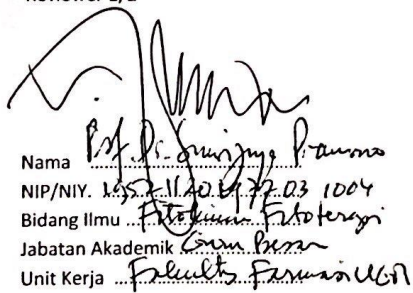 Reviewer 1/2
Nama Prof. Dr. Suwijiyo Pramono
NIP/NIY.
Bidang Ilmu Fitokimia Fitoterapi
Jabatan Akademik Guru Besar
Unit Kerja Fakultas Farmasi UGM